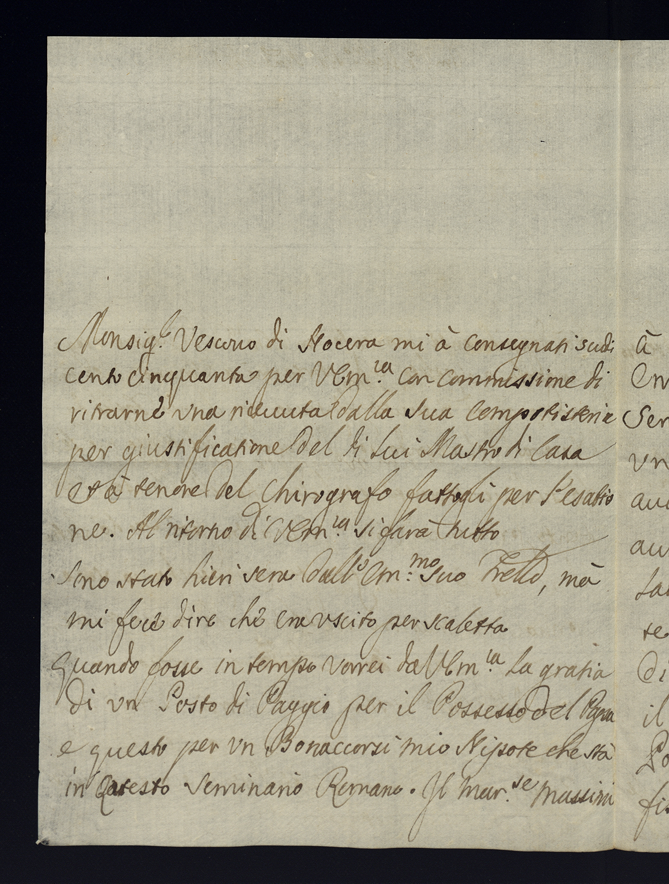 Monsig.r Vescovo di Nocera mi à consegnati scudi
cento cinquanta per VEm.za con commissione di
ritrarne una ricevuta dalla sua Computisteria
per giustificatione del di lui Mastro di Casa
et à tenore del Chirografo fattogli per l'esatio
ne. Al ritorno di VEm.za si farà tutto
Sono stato hieri sera dall' Em.mo suo Frello, mà
mi fece dire che era uscito per scaletta
Quando fosse in tempo vorrei da VEm.za la gratia
di un Posto di Paggio per il Possesso del Papa
e questo per un Bonaccorsi mio Nipote che stà
in questo Seminario Romano. Il Mar.se Massimi
à
Ser
un
il